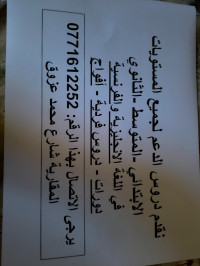 نقدم دروس الدعم لجميع المستويات
الابتدائي -المتوسط -الثانوي
في اللغة الانجليزية والفرنسية
دورات - دروس فردية - افواج
يرجى الاتصال بهذا الرقم: 0771612252
المقارية شارع محمد عزوق